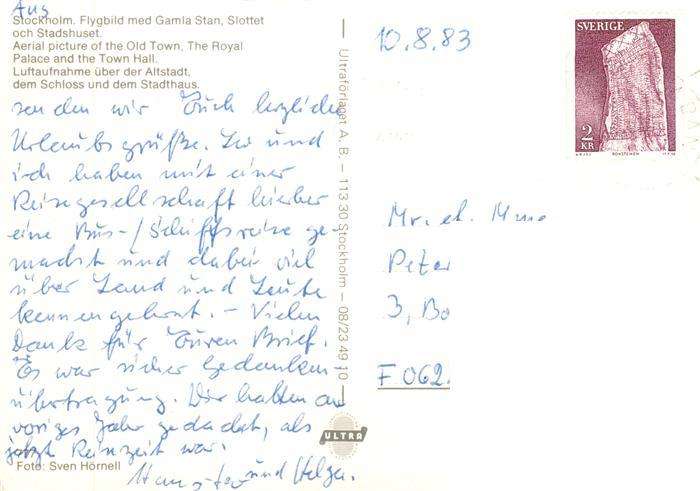 Aus
Stockholm. Flygbild med Gamla Stan, Slottet
och Stadshuset.
Aerial picture of the Old Town, The Royal
Palace and the Town Hall.
Luftaufnahme über der Altstadt,
dem Schloss und dem Stadthaus.
senden wir Euch herzliche
Urlaubsgrüße. Leo und
ich haben mit einer
Reisegesellschaft hierher
eine Bus-/Schiffsreise ge-
macht und dabei viel
über Land und Leute
kennengelernt. – Vielen
Dank für Euren Brief.
Es war sicher Gedanken-
übertragung. Wir hatten an
voriges Jahr gedacht, als
jetzt Reisezeit war.
und Helga.
Foto: Sven Hörnell
Ultraförlaget A. B. – 113 30 Stockholm – 08/23 49 10
ULTRA
10.8.83
SVERIGE
2
KR
ROKSTENEN
Mr. et. Mme
Peter
3, Bo
F 062.